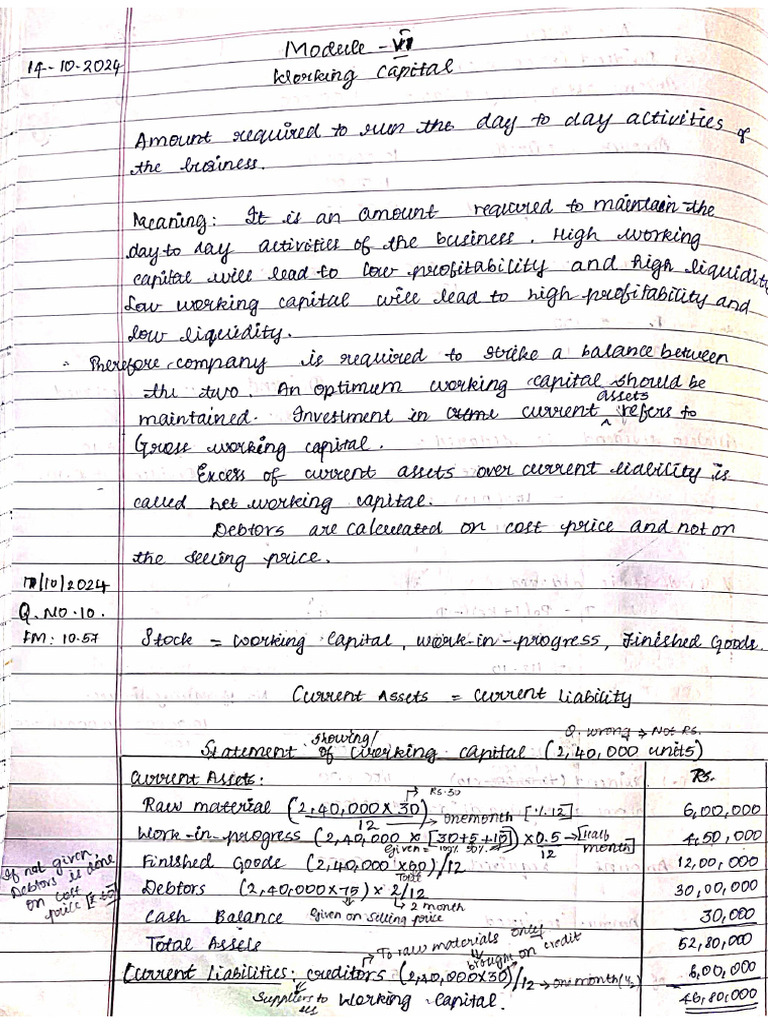 Module - VI
14-10-2024
Working Capital
Amount required to run the day to day activities of
the business.
Meaning: It is an amount required to maintain the
day to day activities of the business. High working
capital will lead to low profitability and high liquidity
Low working capital will lead to high profitability and
low liquidity.
Therefore company is required to strike a balance between
the two. An optimum working capital should be
maintained. Investment in current assets refers to
Gross working capital.
Excess of current assets over current liability is
called net working capital.
Debtors are calculated on cost price and not on
the selling price.
17/10/2024
Q. NO. 10.
FM: 10.57
Stock = Working Capital, work-in-progress, Finished Goods.
Current Assets = Current Liability
Q. wrong → Not Rs.
Statement showing/of working capital (2,40,000 units)
Current Assets: Rs.
→ Rs.30
Raw material (2,40,000 x 30)/12 → one month [1/12] 6,00,000
Work-in-progress (2,40,000 x [30+5+10]) x 0.5/12 → [half month] 4,50,000
Given = 100% 50%
Finished Goods (2,40,000 x 60)/12 12,00,000
Total
Debtors (2,40,000 x 75) x 2/12 30,00,000
→ 2 month
Given on selling price
If not given
Debtors is done
on cost
price
Cash Balance 30,000
Total Assets 52,80,000
→ To raw materials only brought on credit
Current Liabilities: creditors (2,40,000x30)/12 → one month 6,00,000
Suppliers to
Working Capital. 46,80,000